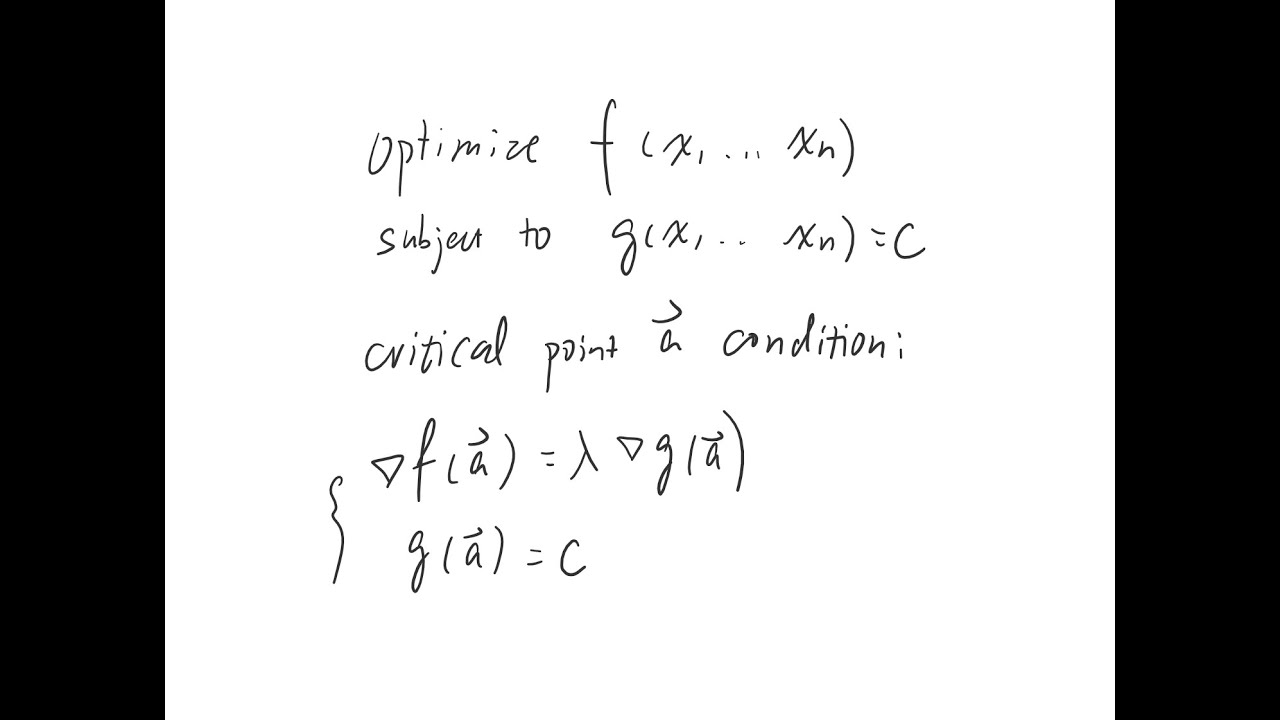 optimize f(x₁ ... xₙ)
subject to g(x₁ ... xₙ) = C
critical point a⃗ condition:
∇f(a⃗) = λ∇g(a⃗)
g(a⃗) = C